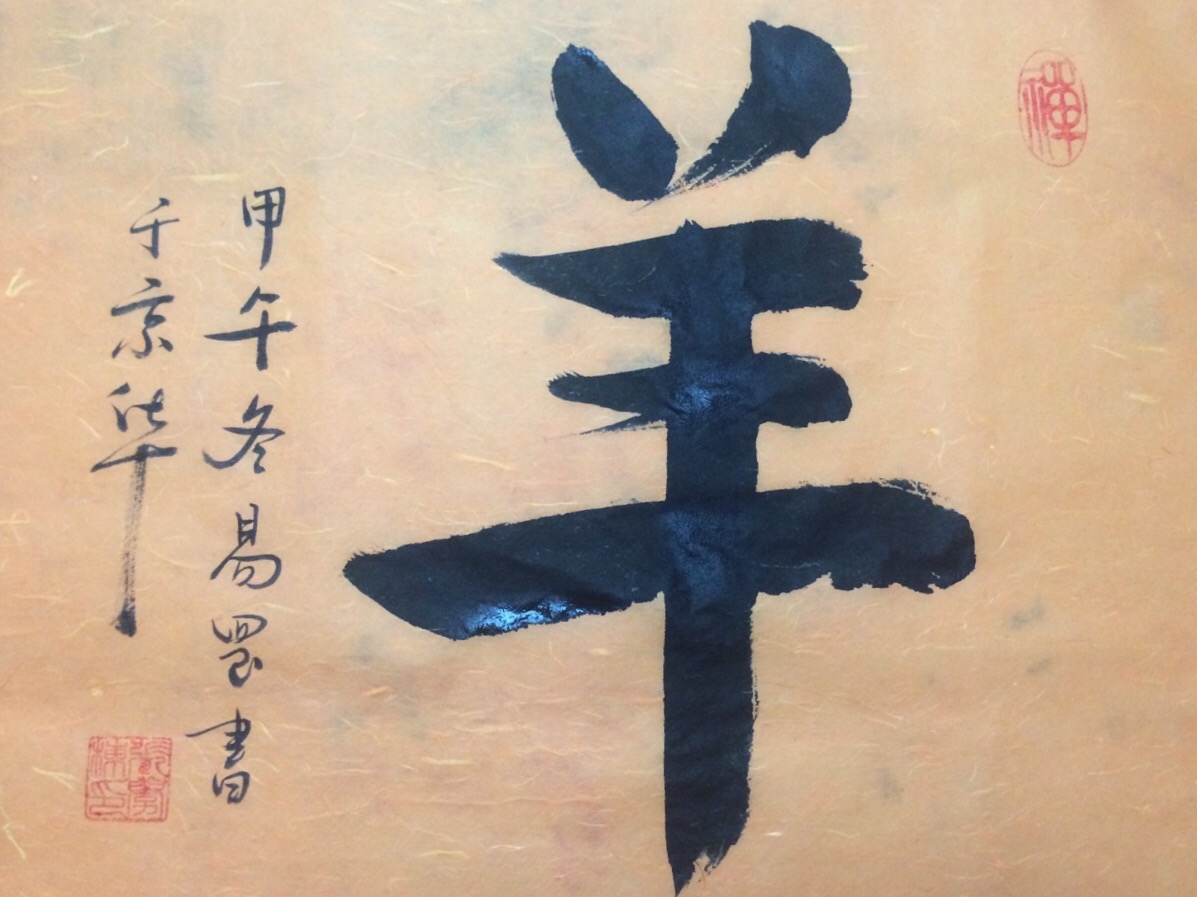 羊
禅
甲午冬易墨书
于京华